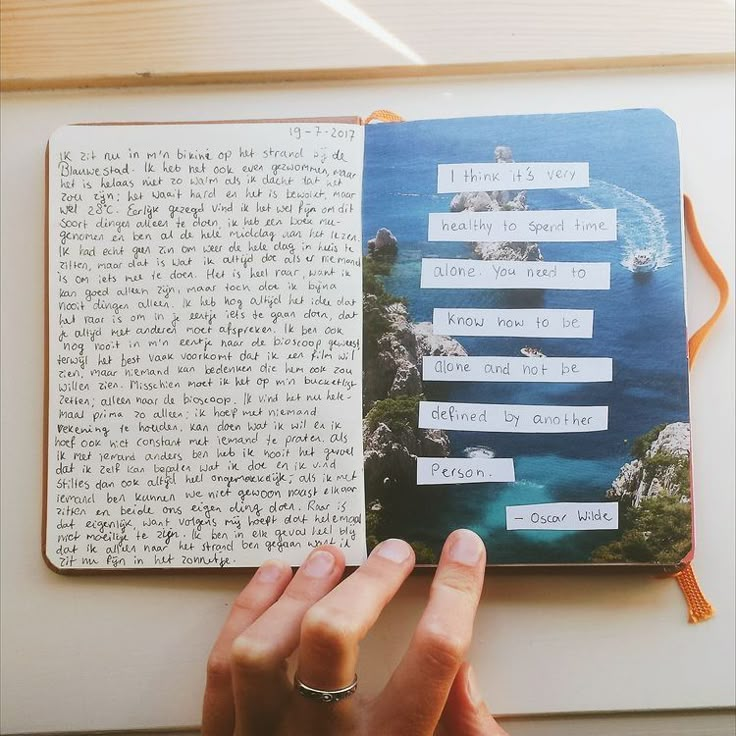 19-7-2017
Ik zit nu in m'n bikini op het strand bij de
Blauwestad. Ik heb net ook even gezwommen, maar
het is helaas niet zo warm als ik dacht dat het
zou zijn; het waait hard en het is bewolkt, maar
wel 28°C. Eerlijk gezegd vind ik het wel fijn om dit
soort dingen alleen te doen, ik heb een boek mee-
genomen en ben al de hele middag aan het lezen.
Ik had echt geen zin om weer de hele dag in huis te
zitten, maar dat is wat ik altijd doe als er niemand
is om iets mee te doen. Het is heel raar, want ik
kan goed alleen zijn, maar toch doe ik bijna
nooit dingen alleen. Ik heb nog altijd het idee dat
het raar is om in je eentje iets te gaan doen, dat
je altijd met anderen moet afspreken. Ik ben ook
nog nooit in m'n eentje naar de bioscoop geweest
terwijl het best vaak voorkomt dat ik een film wil
zien, maar niemand kan bedenken die hem ook zou
willen zien. Misschien moet ik het op m'n bucketlist
zetten; alleen naar de bioscoop. Ik vind het nu hele-
maal prima zo alleen; ik hoef met niemand
rekening te houden, kan doen wat ik wil en ik
hoef ook niet constant met iemand te praten. Als
ik met iemand anders ben heb ik nooit het gevoel
dat ik zelf kan bepalen wat ik doe en ik vind
stiltes dan ook altijd heel ongemakkelijk, als ik met
iemand ben kunnen we niet gewoon naast elkaar
zitten en beide ons eigen ding doen. Raar is
dat eigenlijk, want volgens mij hoeft dat helemaal
niet moeilijk te zijn. Ik ben in elk geval heel blij
dat ik alleen naar het strand ben gegaan want ik
zit nu fijn in het zonnetje.
I think it's very
healthy to spend time
alone. You need to
know how to be
alone and not be
defined by another
person.
- Oscar Wilde